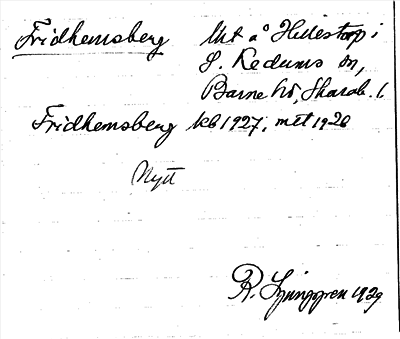 Fridhemsberg Lht å Hillestorp i
S. Kedums sn,
Barne hd, Skarab. l.
Fridhemsberg kb 1927, mtl 1926
Nytt
R. Ljunggren 1929